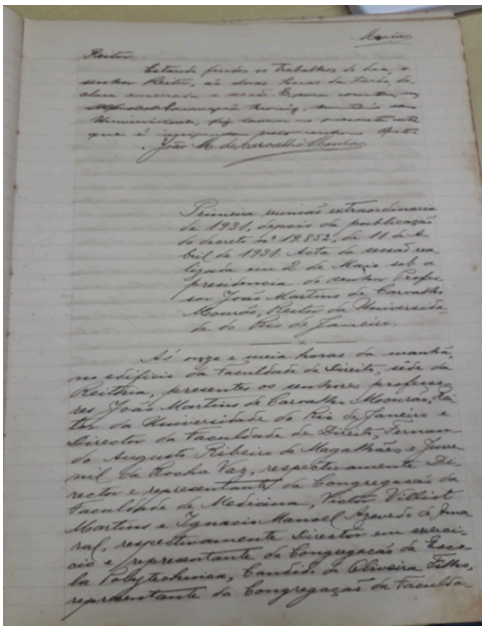 Mourão
Reitor.
Estando findos os trabalhos do dia, o
senhor Reitor, ás duas horas da tarde, de-
clara encerrada a sessão. E, para constar, eu
que é assignada pelo senhor Reitor.
João M. de Carvalho Mourão
Primeira reunião extraordinaria
de 1931, depois da publicação
do decreto nº 19.852, de 11 de A-
bril de 1931. Acta da sessão rea-
lizada em 2 de Maio sob a
presidencia do senhor Profes-
sor João Martins de Carvalho
Mourão, Reitor da Universida-
de do Rio de Janeiro.
Ás onze e meia horas da manhã,
no edificio da Faculdade de Direito, séde da
Reitoria, presentes os senhores professo-
res João Martins de Carvalho Mourão, Rei-
tor da Universidade do Rio de Janeiro e
Director da Faculdade de Direito, Fernan-
do Augusto Ribeiro de Magalhães e Juve-
nil da Rocha Vaz, respectivamente Di-
rector e representante da Congregação da
Faculdade de Medicina, Victor Villiot
Martins e Ignacio Manoel Azevedo do Ama-
ral, respectivamente Director em exerci-
cio e representante da Congregação da Esco-
la Polytechnica, Candido de Oliveira Filho,
representante da Congregação da Faculda-